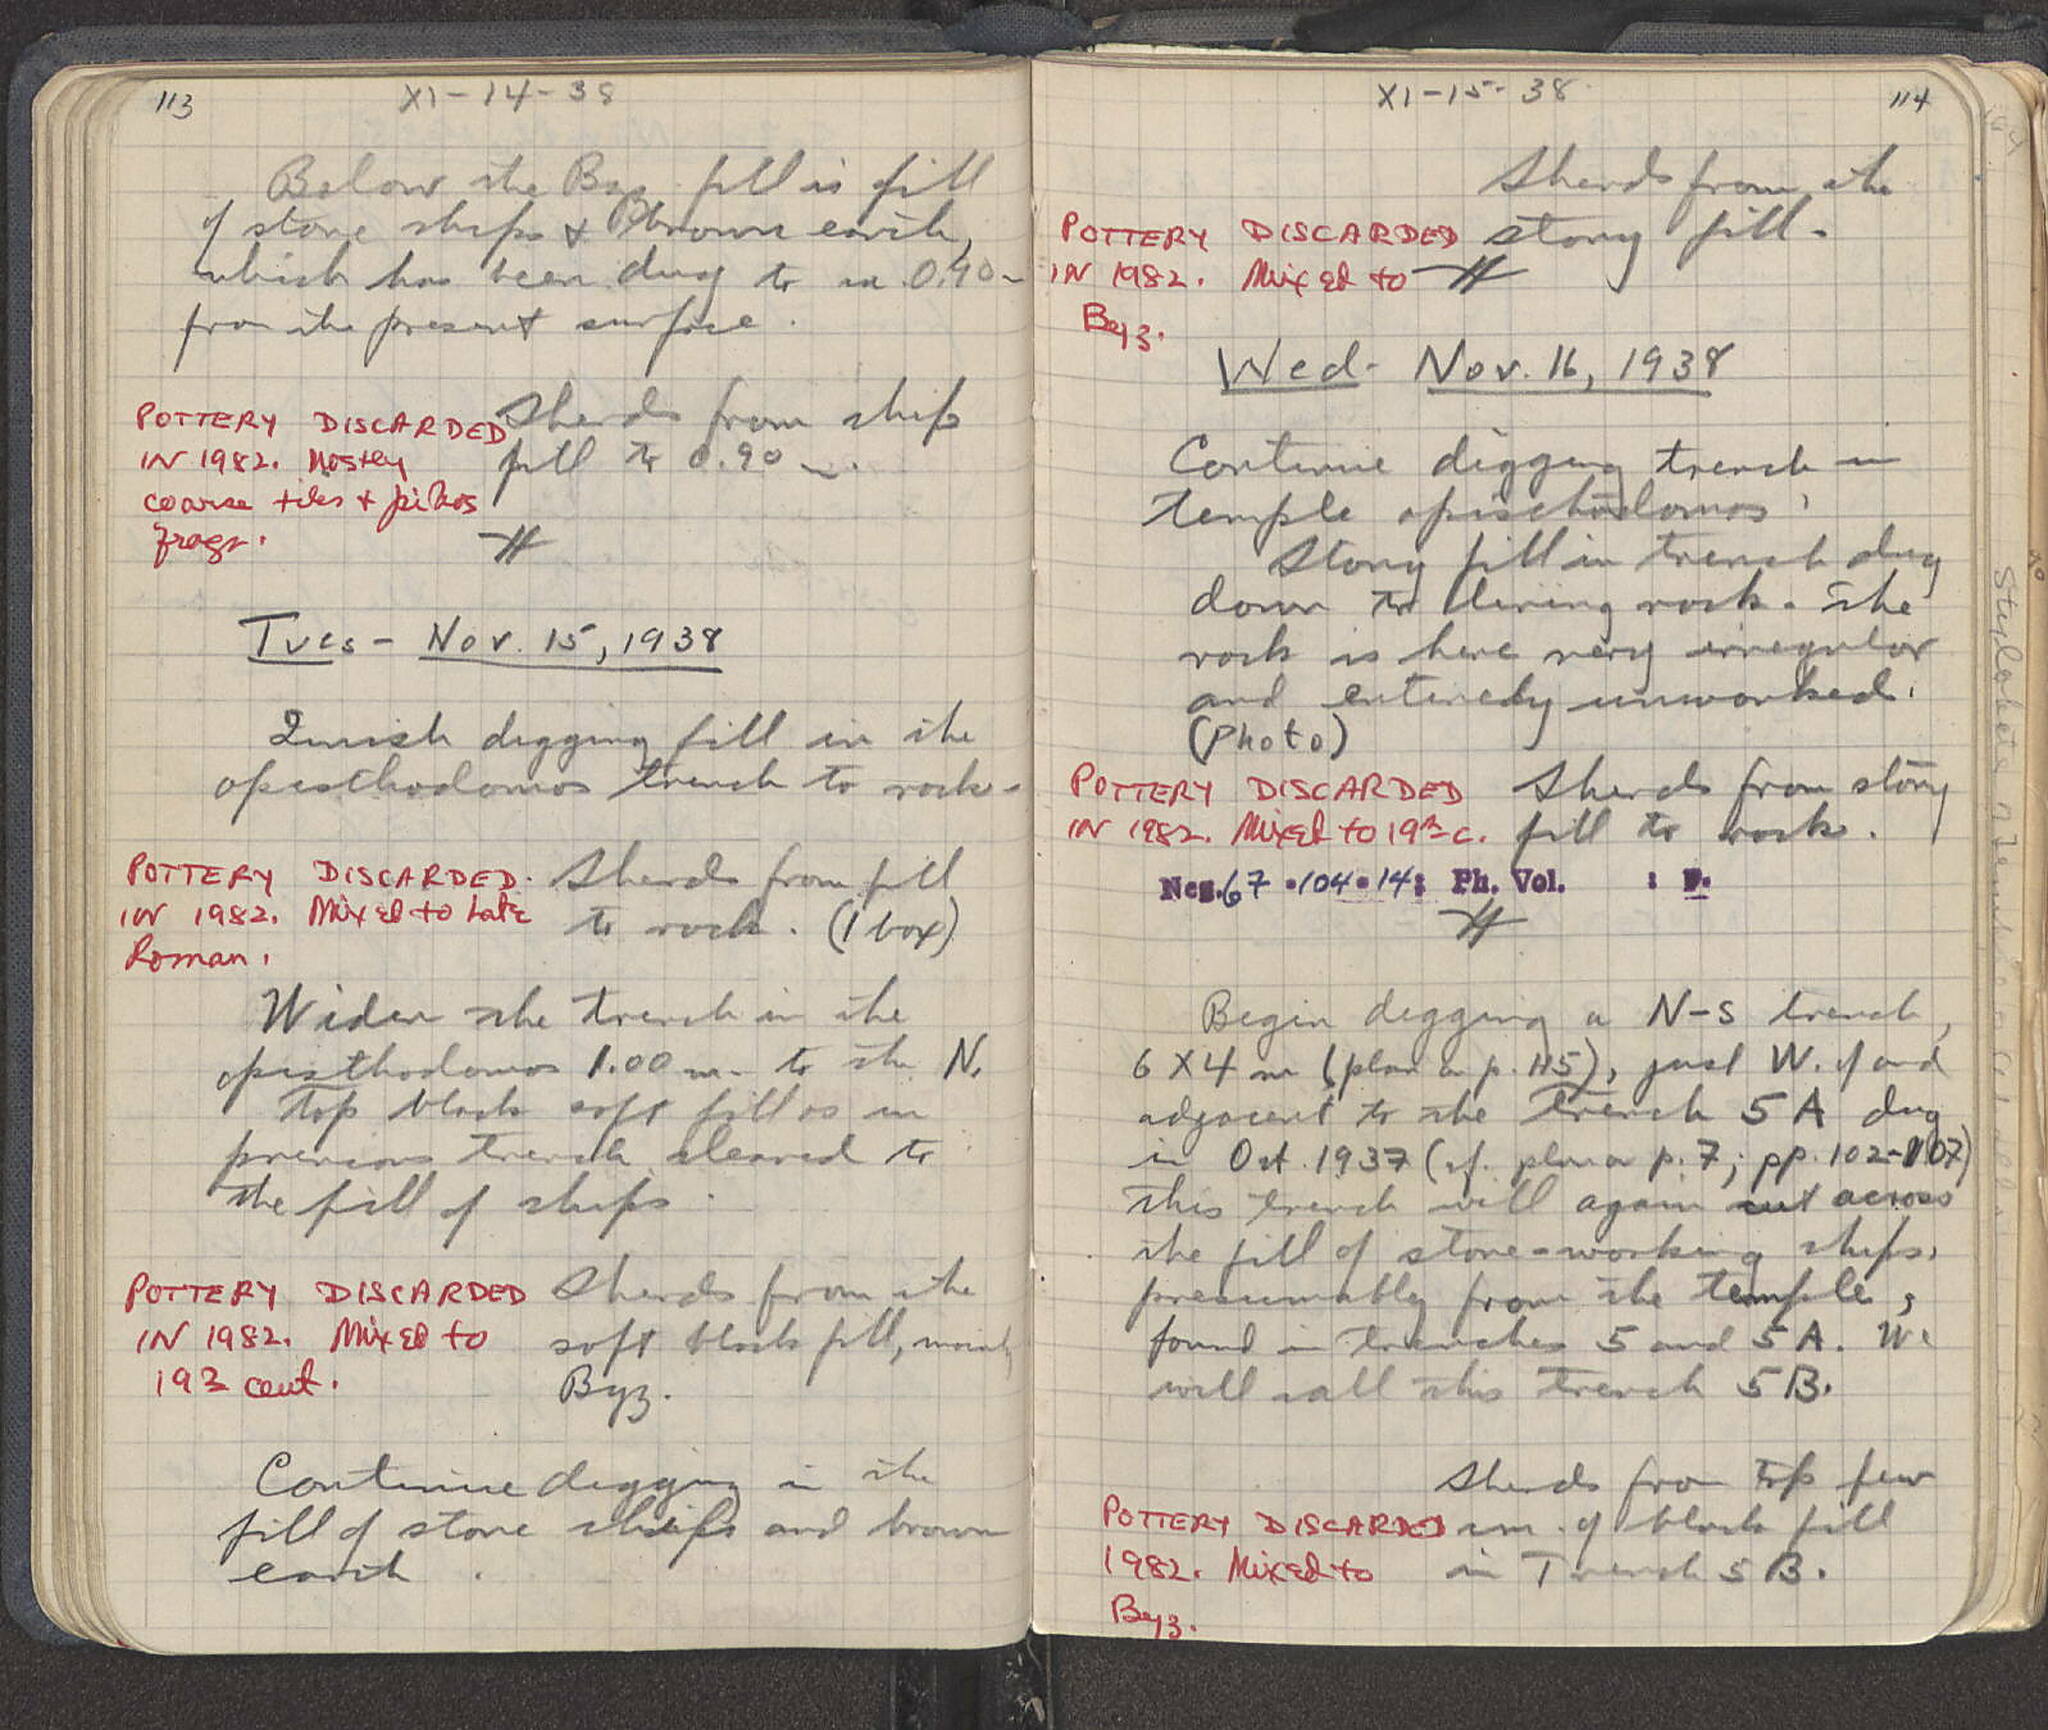 113
XI-14-38
Below the Byz. fill is fill
of stone chips & brown earth,
which has been dug to ca 0.90 m
from the present surface.
Sherds from chip
fill to 0.90 m.
POTTERY DISCARDED
IN 1982. Mostly
coarse tiles & pithos
frags.
Tues - Nov. 15, 1938
Finish digging fill in the
opisthodomos trench to rock.
Sherds from fill
to rock. (1 box)
POTTERY DISCARDED.
IN 1982. Mixed to Late
Roman.
Widen the trench in the
opisthodomos 1.00 m. to the N.
Top black soft fill as in
previous trench cleared to
the fill of chips.
Sherds from the
soft black fill, mainly
Byz.
POTTERY DISCARDED
IN 1982. Mixed to
19th cent.
Continue digging in the
fill of stone chips and brown
earth.
XI-15-38
114
Sherds from the
stony fill.
POTTERY DISCARDED
IN 1982. Mixed to
Byz.
Wed - Nov. 16, 1938
Continue digging trench in
temple opisthodomos.
Stony fill in trench dug
down to living rock. The
rock is here very irregular
and entirely unworked.
(Photo)
Sherds from stony
fill to rock.
POTTERY DISCARDED
IN 1982. Mixed to 19th c.
Neg. 67 • 104 • 14: Ph. Vol. : P.
Begin digging a N-S trench,
6 X 4 m (plan on p. 115), just W. of and
adjacent to the trench 5 A dug
in Oct. 1937 (cf. plan on p. 7; pp. 102-107)
This trench will again cut across
the fill of stone-working chips,
presumably from the temple,
found in trenches 5 and 5 A. We
will call this trench 5 B.
Sherds from top few
cm. of black fill
in Trench 5 B.
POTTERY DISCARDED
1982. Mixed to
Byz.